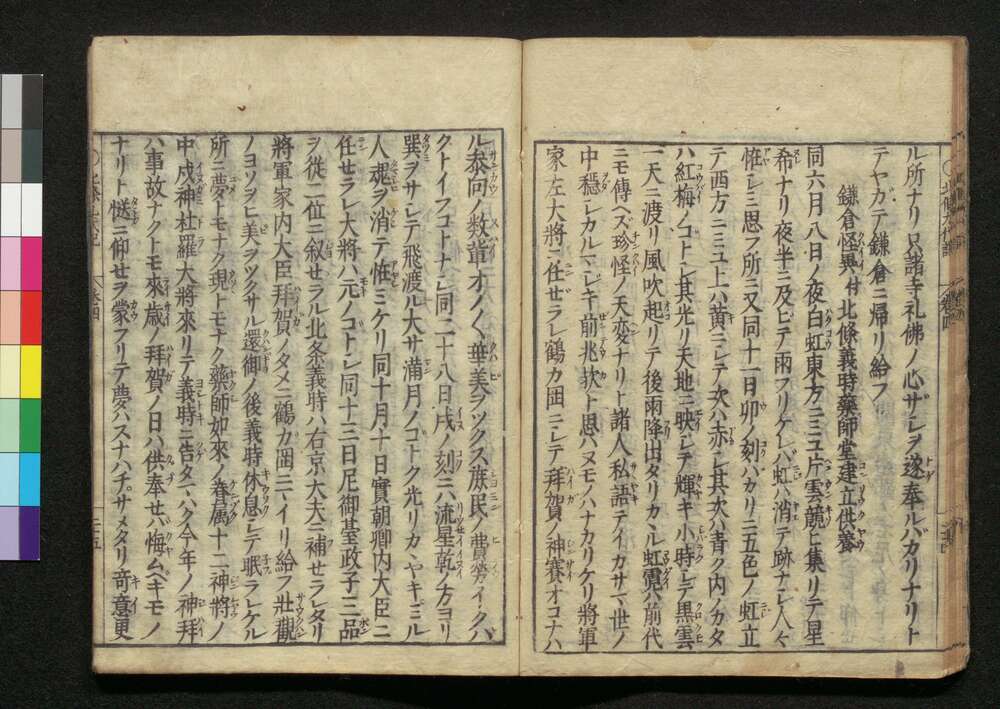 ル所ナリ只諸寺礼佛ノ心ザシヲ遂奉ルバカリナリト
テヤガテ鎌倉ニ帰リ給フ
鎌倉怪異付北條義時藥師堂建立供養
同六月八日ノ夜白虹東方ニミユ片雲競ヒ集リテ星
希ナリ夜半ニ及ビテ雨フリケレバ虹ハ消テ跡ナシ人々
惟シミ思フ所ニ又同十一日卯ノ刻バカリニ五色ノ虹立
テ西方ニミユ上ハ黄ニシテ次ハ赤シ其次ハ青ク内ノカタ
ハ紅梅ノゴトシ其光リ天地ニ映シテ輝キ小時シテ黒雲
一天ニ渡リ風吹起リテ後雨降出タリカヽル虹霓ハ前代
ニモ傳ヘズ珍怪ノ天変ナリト諸人私語テイカサマ世ノ
中穏シカルマジキ前兆欤ト思ハヌモノハナカリケリ將軍
家左大將ニ任ゼラレ鶴カ岡ニシテ拜賀ノ神賽オコナハ
ル参向ノ数輩オノ〳〵華美ヲツクス庶民ノ費勞イクバ
クトイフコトナシ同二十八日戌ノ刻ニハ流星乾ノ方ヨリ
巽ヲサシテ飛渡ル大サ満月ノゴトク光リカヽヤキミル
人魂ヲ消テ恠ミケリ同十月十日實朝卿内大臣ニ
任セラレ大將ハ元ノゴトシ同十三日尼御臺政子三品
ヲ從二位ニ叙せラル北条義時ハ右京大夫ニ補せラレタリ
將軍家内大臣拜賀ノタメニ鶴カ岡ニマイリ給フ壮觀
ノヨソヲヒ美ヲツクサル還御ノ後義時休息シテ眠ラレケル
所ニ夢トモナク現トモナク藥師如來ノ眷属十二神將ノ
中戌神社羅大將來リテ義時ニ告タマハク今年ノ神拜
ハ事故ナクトモ來歳ノ拜賀ノ日ハ供奉せバ悔ムベキモノ
ナリト慥ニ仰せヲ蒙フリテ夢ハスナハチサメタリ奇意更